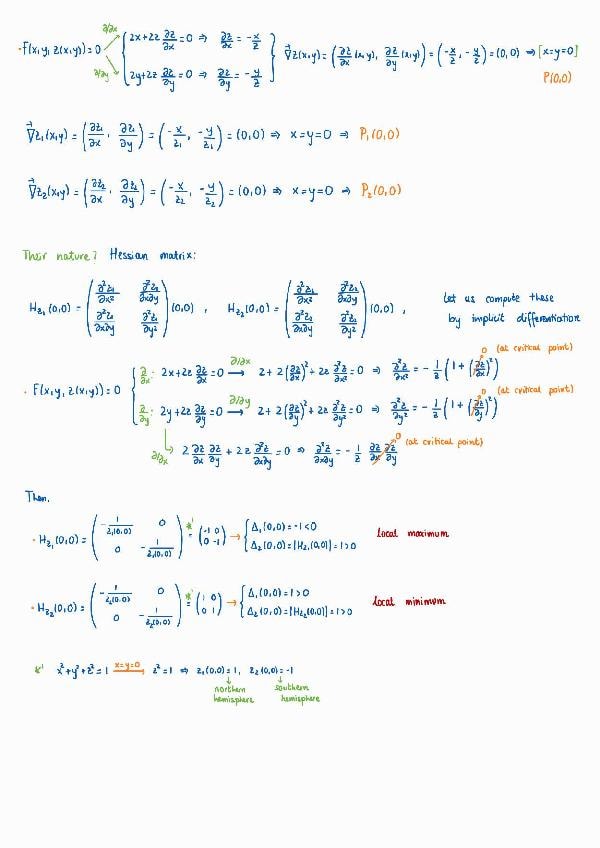 ∂/∂x
· F(x,y, z(x,y)) = 0 { 2x+2z ∂z/∂x = 0 ⇒ ∂z/∂x = -x/z
∂/∂y 2y+2z ∂z/∂y = 0 ⇒ ∂z/∂y = -y/z } ∇⃗z(x,y) = (∂z/∂x (x,y), ∂z/∂y (x,y)) = (-x/z, -y/z) = (0,0) ⇒ [x=y=0]
P(0,0)
∇⃗z₁(x,y) = (∂z₁/∂x, ∂z₁/∂y) = (-x/z₁, -y/z₁) = (0,0) ⇒ x=y=0 ⇒ P₁(0,0)
∇⃗z₂(x,y) = (∂z₂/∂x, ∂z₂/∂y) = (-x/z₂, -y/z₂) = (0,0) ⇒ x=y=0 ⇒ P₂(0,0)
Their nature? Hessian matrix:
H_z₁(0,0) = (∂²z₁/∂x² ∂²z₁/∂x∂y ; ∂²z₁/∂x∂y ∂²z₁/∂y²)(0,0) , H_z₂(0,0) = (∂²z₂/∂x² ∂²z₂/∂x∂y ; ∂²z₂/∂x∂y ∂²z₂/∂y²)(0,0) ,
Let us compute these
by implicit differentiation
0 (at critical point)
∂/∂x: 2x+2z ∂z/∂x = 0 →∂/∂x 2+2(∂z/∂x)²+2z ∂²z/∂x² = 0 ⇒ ∂²z/∂x² = -1/z (1+(∂z/∂x)²)
· F(x,y, z(x,y)) = 0
0 (at critical point)
∂/∂y: 2y+2z ∂z/∂y = 0 →∂/∂y 2+2(∂z/∂y)²+2z ∂²z/∂y² = 0 ⇒ ∂²z/∂y² = -1/z (1+(∂z/∂y)²)
0 (at critical point)
∂/∂x 2 ∂z/∂x ∂z/∂y + 2z ∂²z/∂x∂y = 0 ⇒ ∂²z/∂x∂y = -1/z ∂z/∂x ∂z/∂y
Then,
· H_z₁(0,0) = (-1/z₁(0,0) 0 ; 0 -1/z₁(0,0)) =*¹ (-1 0 ; 0 -1) → { Δ₁(0,0) = -1 < 0
Δ₂(0,0) = |H_z₁(0,0)| = 1 > 0 local maximum
· H_z₂(0,0) = (-1/z₂(0,0) 0 ; 0 -1/z₂(0,0)) =*¹ (1 0 ; 0 1) → { Δ₁(0,0) = 1 > 0
Δ₂(0,0) = |H_z₂(0,0)| = 1 > 0 local minimum
*¹ x²+y²+z²=1 x=y=0→ z²=1 ⇒ z₁(0,0)=1, z₂(0,0)=-1
northern southern
hemisphere hemisphere